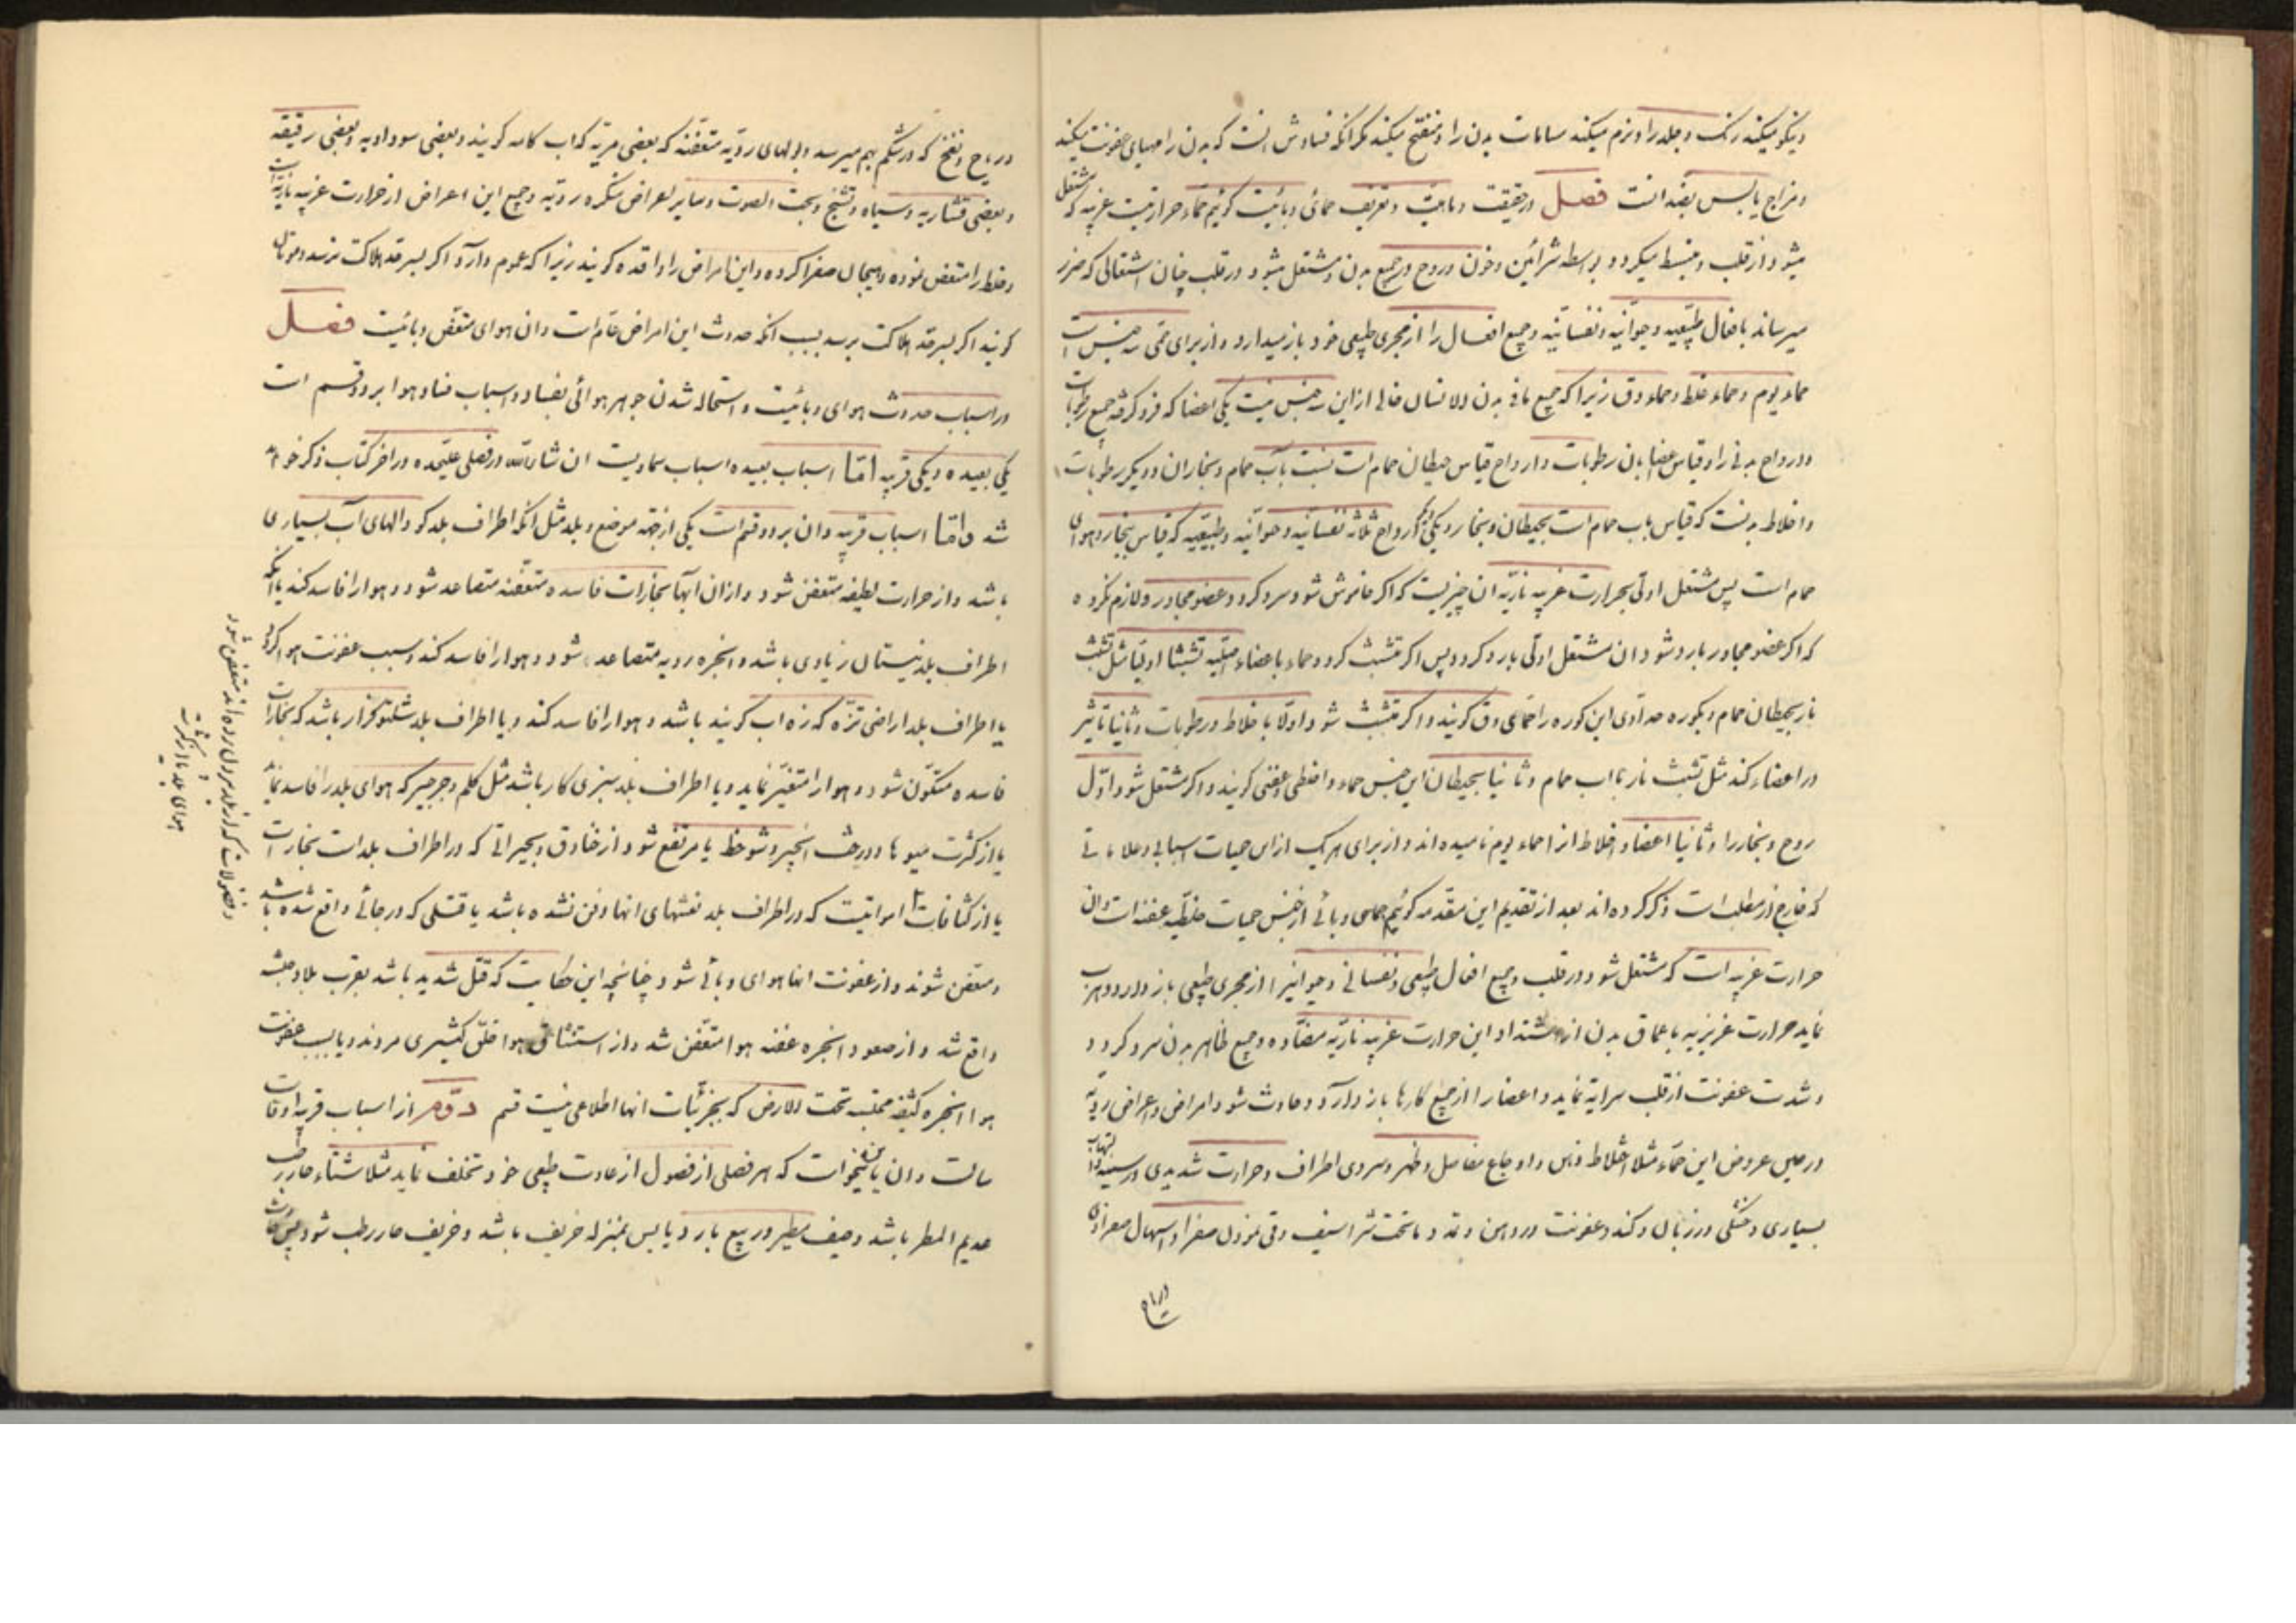 و نیکو میکند رنک و جلد را و نرم میکند مسامات بدن را و منفتح میکند مکر انکه فسادش انست که بدن را مهیای عفونت میکند
و مزاج یابس بضد انست فصل در حقیقت و ماهیت و تعریف حمائی وبائیت کوئیم حماء حرارتیست غریبه که مشتعل
میشود از قلب و منبسط میکردد بواسطه شرائین و خون و روح در جمیع بدن و مشتعل میشود در قلب چنان اشتعالی که ضرر
میرساند بافعال طبیعیه و حیوانیه و نفسانیه و جمیع افعال را از مجری طبیعی خود باز میدارد و از برای حمی سه جنس است
حماء یوم و حماء خلط و حماء دق زیرا که جمیع مافی بدن الانسان خالی از این سه جنس نیست یکی اعضا که فرو کرفته جمیع رطوبات
و ارواح بدنی را و قیاس اعضا بان رطوبات و ارواح قیاس حیطان حمام است نسبت بآب حمام و بخار ان و دیکر رطوبات
و اخلاط بدنست که قیاس باب حمام است بحیطان و بخار و یکی دیکر ارواح ثلاثه نفسانیه و حیوانیه و طبیعیه که قیاس ببخار و هوای
حمام است پس مشتعل اولی بحرارت غریبه ناریه ان چیزیست که اکر خاموش شود سرد کردد عضو مجاور و لازم نکرده
که اکر عضو مجاور بارد شود ان مشتعل اولی بارد کردد پس اکر متشبث کردد حماء باعضاء اصلیه تشبثا اولیا مثل تشبث
نار بحیطان حمام و بکوره حدادی این کوره را حمای دق کویند و اکر متشبث شود اولا با خلاط و رطوبات و ثانیا تاثیر
در اعضاء کند مثل تشبث نار بماء اب حمام و ثانیا بحیطان این جنس حماء را خلطی و عفنی کویند و اکر مشتعل شود اول
روح و بخار را و ثانیا اعضا و اخلاط از احماء یوم نامیده اند و از برای هریک از این حمیات اسبابی و علاماتی
که خارج از مطلب است ذکر کرده اند بعد از تقدیم این مقدمه کوئیم حمای وبائی از جنس حمیات خلطیه عفنه است و ان
حرارت غریبه است که مشتعل شود در قلب و جمیع افعال طبیعی و نفسانی و حیوانیرا از مجری طبیعی باز دارد و هرب
نماید حرارت غریزیه باعماق بدن از اشتداد این حرارت غریبه ناریه مضاده و جمیع ظاهر بدن سرد کردد
و شدت عفونت از قلب سرایه نماید و اعضا را از جمیع کارها باز دارد و حادث شود امراض و اعراض ردیه
در حین عروض این حماء مثلا اختلاط ذهن و اوجاع مفاصل و ظهر و سردی اطراف و حرارت شدیدی در سینه و التهاب
بسیاری و خشکی در زبان و کند و عفونت در دهن و تمدد ما تحت شراسیف و قی نمودن صفرا و اسهال صفراوی
و ریاح و نفخ که در شکم بهم میرسد و بولهای ردیه متعفنه که بعضی مریه که اب کامه کویند و بعضی سوداویه و بعضی رقیقه
و بعضی قشاریه و سیاه و تشنج و بحت الصوت و سایر اعراض منکره ردیه و جمیع این اعراض از حرارت غریبه ناریه است
و خلط را متعفن نموده و هیجان صفرا کرده و این امراض را وافده کویند زیرا که عموم دارد و اکر بسرحد هلاکت نرسد و موتان
کویند اکر بسرحد هلاکت برسد بسبب انکه حدوث این امراض عام است و ان هوای متعفن وبائیت فصل
در اسباب حدوث هوای وبائیت و استحاله شدن جوهر هوائی بفساد و اسباب فساد هوا بر دو قسم است
یکی بعیده و یکی قریبه اما اسباب بعیده اسباب سماویست ان شاءالله در فصلی علیحده در اخر کتاب ذکر خواهد
شد و اما اسباب قریبه و ان بر دو قسم است یکی از جهه موضع و بلد مثل انکه اطراف بلد کودالهای آب بسیاری
باشد و از حرارت لطیفه متعفن شود و از ان آبها بخارات فاسده متعفنه متصاعد شود و هوا را فاسد کند یا انکه
اطراف بلد نیستان زیادی باشد و ابخره ردیه متصاعد شود و هوا را فاسد کند و سبب عفونت هوا کردد
یا اطراف بلد اراضی نزه که زه اب کویند باشد و هوا را فاسد کند و یا اطراف بلد شلتوکزار باشد که بخارات
فاسده متکون شود و هوا را متغیر نماید و یا اطراف بلد سبزی کار باشد مثل کلم و جرجیر که هوای بلد را فاسد نماید
یا از کثرت میوها و درخت انجیر و شوخط یا مرتفع شود از خنادق و بحیراتی که در اطراف بلد است بخارات
یا از کثافات امواتیست که در اطراف بلد نعشهای انها دفن نشده باشد یا قتلی که در جائی واقع شده باشد
و متعفن شوند و از عفونت انها هوای وبائی شود چنانچه این حکایت که قتل شدید باشد بقرب بلاد حبشه
واقع شد و از صعود ابخره عفنه هوا متعفن شد و از استنشاق هوا خلق کثیری مردند و یا بسبب عفونت
هوا ابخره کثیفه محتبسه تحت الارض که بجزئیات انها اطلاعی نیست قسم دوم از اسباب قریبه اوقات
سالست و ان باین نحو است که هر فصلی از فصول از عادت طبیعی خود تخلف نماید مثلا شتاء حار رطب
عدیم المطر باشد و صیف مطیر و ربیع بارد یابس بمنزله خریف باشد و خریف حار رطب شود پس
و فضولات که از بلد بیرون برده اند متعفن شود
هوای بلد یا از کثرت